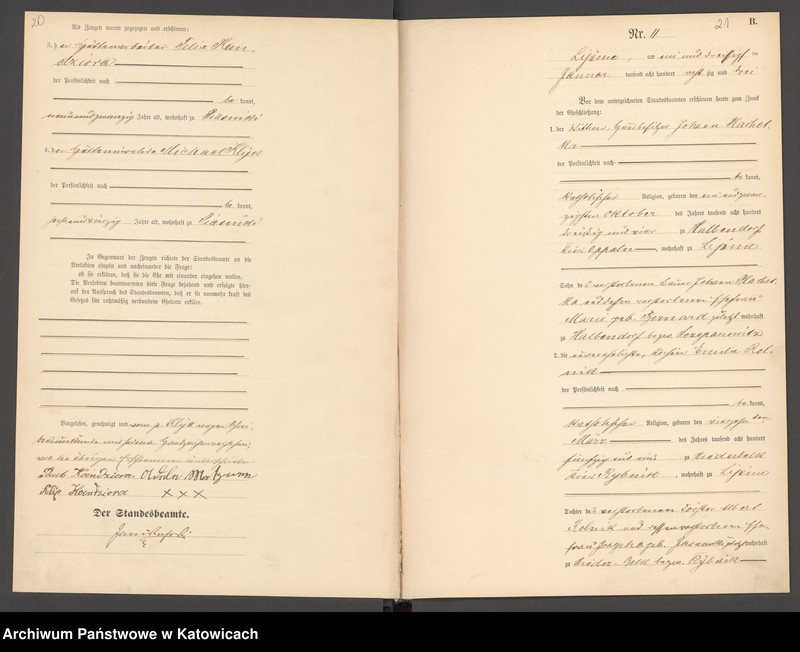 20
Als Zeugen waren zugezogen und erschienen:
3. der Hüttenarbeiter Felix Kan-
dziora
der Persönlichkeit nach
be kannt,
neunundzwanzig Jahre alt, wohnhaft zu Piasniki
4. der Hütteninvalide Michael Klyk
der Persönlichkeit nach
be kannt,
Jahre alt, wohnhaft zu Piasniki
In Gegenwart der Zeugen richtete der Standesbeamte an die
Verlobten einzeln und nacheinander die Frage:
ob sie erklären, daß sie die Ehe mit einander eingehen wollen.
Die Verlobten beantworteten diese Frage bejahend und erfolgte hier-
auf der Ausspruch des Standesbeamten, daß er sie nunmehr kraft des
Gesetzes für rechtmäßig verbundene Eheleute erkläre.
Vorgelesen, genehmigt und von p. Klyk wegen Schrei-
bensunkunde mit seinem Handzeichen versehen,
von den übrigen Erschienenen unterschrieben
Paul Kandziora
Felix Kandziora + + +
Der Standesbeamte.
21
B.
Nr. 11
Lipine, am ein und dreißigsten
Januar tausend acht hundert acht zig und drei
Vor dem unterzeichneten Standesbeamten erschienen heute zum Zweck
der Eheschließung:
1. der Wittwer, Johann Machet-
ka
der Persönlichkeit nach
be kannt,
katholischer Religion, geboren den ein und zwan-
zigsten Oktober des Jahres tausend acht hundert
dreißig und vier zu Halbendorf
Kreis Oppeln, wohnhaft zu Lipine
Sohn des verstorbenen Johann Machet-
ka und dessen verstorbenen Ehefrau
Marie geb. Bernard zuletzt wohnhaft
zu Halbendorf bezw. Sczepanowitz
2. die unverehelichte, Emilie Rol-
nik
der Persönlichkeit nach
be kannt,
katholischer Religion, geboren den vierzehnten
März des Jahres tausend acht hundert
fünfzig und zu
Kreis Rybnik, wohnhaft zu Lipine
Tochter des verstorbenen Förster Albert
Rolnik und dessen verstorbenen Ehe-
frau Josepha geb. zuletzt wohnhaft
zu bezw. Rybnik
Archiwum Państwowe w Katowicach